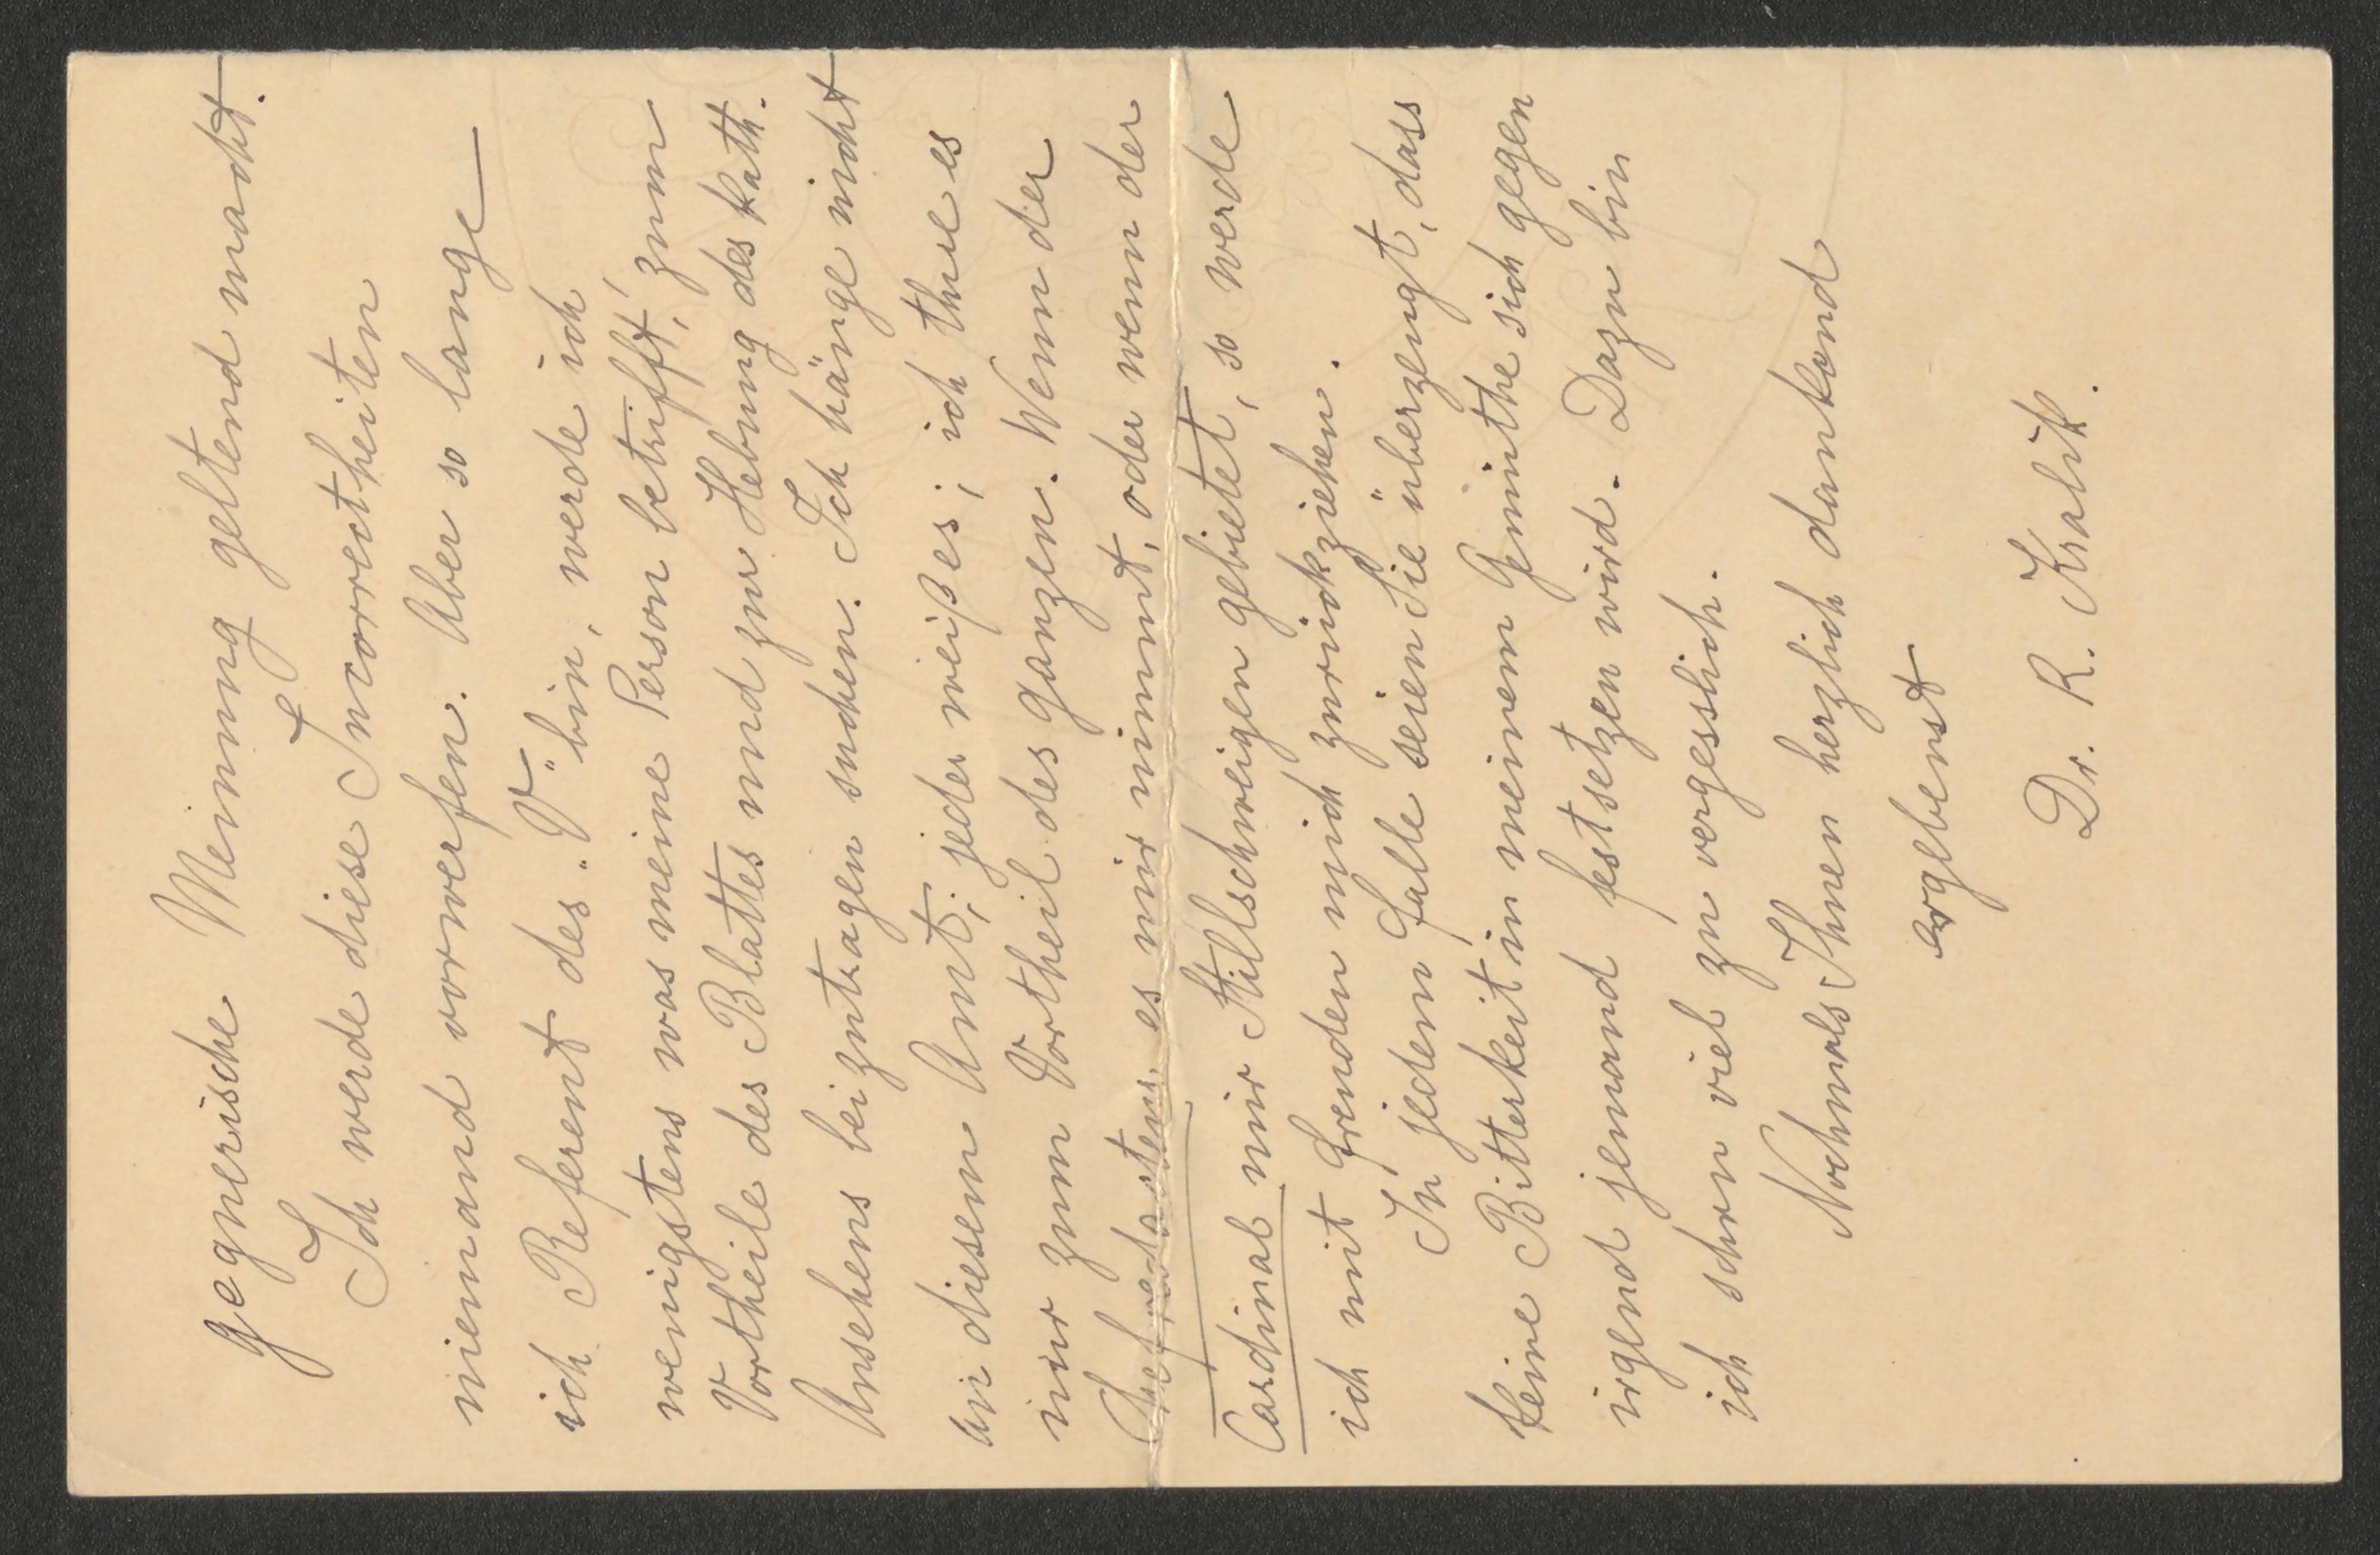 gegnerische Meinung geltend macht.
Ich werde diese Incorrectheiten
niemand vorwerfen. Aber so lange
ich Referent des „V“ bin, werde ich
wenigstens was meine Person betrifft, zum
Vortheile des Blattes und zur Hebung des kath.
Ansehens beizutragen suchen. Ich hänge nicht
an diesem Amt; jeder weiß es; ich thue es
nur zum Vortheil des Ganzen. Wenn der
Chefredacteur es mir nimmt, oder wenn der
Cardinal mir Stillschweigen gebietet, so werde
ich mit Freuden mich zurückziehen.
In jedem Falle seien Sie überzeugt, dass
keine Bitterkeit in meinem Gemüthe sich gegen
irgend jemand festsetzen wird. Dazu bin
ich schon viel zu vergesslich.
Nochmals Ihnen herzlich dankend
ergebenst
Dr. R. Kralik.